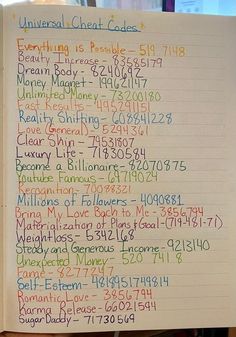 Universal Cheat Codes
Everything is Possible - 519 7148
Beauty Increase - 83585179
Dream Body - 8240692
Money Magnet - 199621147
Unlimited Money - 73200180
Fast Results - 49529115
Reality Shifting - 608841228
Love (General) - 5294361
Clear Skin - 79531807
Luxury Life - 71830584
Become a Billionaire - 82070875
Youtube Famous - 69719029
Recognition - 70088321
Millions of Followers - 4090881
Bring My Love Back to Me - 3856794
Materialization of Plans & Goal - (719-481-71)
Weightloss - 5342168
Steady and Generous Income - 9213140
Unexpected Money - 520 741 8
Fame - 8277247
Self-Esteem - 4818951749814
Romantic Love - 3856794
Karma Release - 66021594
Sugar Daddy - 71730569